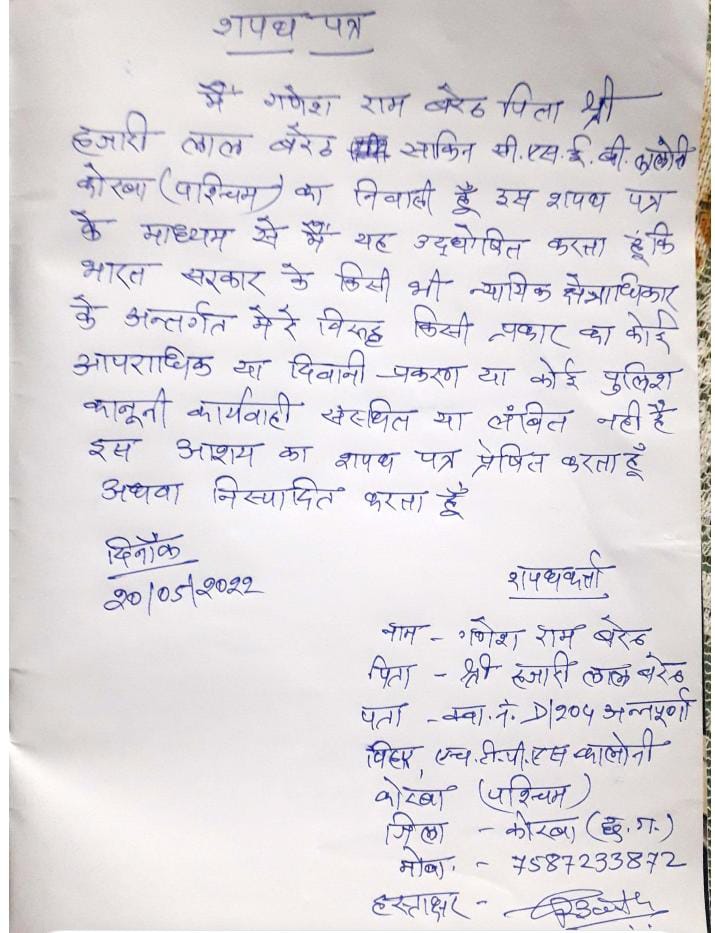 शपथ पत्र
मैं गणेश राम बरेठ पिता श्री
हजारी लाल बरेठ साकिन सी.एस.ई.बी. कालोनी
कोरबा (पश्चिम) का निवासी हूँ इस शपथ पत्र
के माध्यम से मैं यह उद्घोषित करता हूं कि
भारत सरकार के किसी भी न्यायिक क्षेत्राधिकार
के अन्तर्गत मेरे विरूद्ध किसी प्रकार का कोई
आपराधिक या दिवानी प्रकरण या कोई पुलिश
कानूनी कार्यवाही संस्थित या लंबित नही है
इस आशय का शपथ पत्र प्रेषित करता हूँ
अथवा निस्पादित करता हूँ
दिनाँक
20/05/2022
शपथकर्त्ता
नाम - गणेश राम बरेठ
पिता - श्री हजारी लाल बरेठ
पता - क्वा. नं. D/204 अन्नपूर्णा
विहार, एच.टी.पी.एस कालोनी
कोरबा (पश्चिम)
जिला - कोरबा (छ.ग.)
मोबा. - 7587233872
हस्ताक्षर -